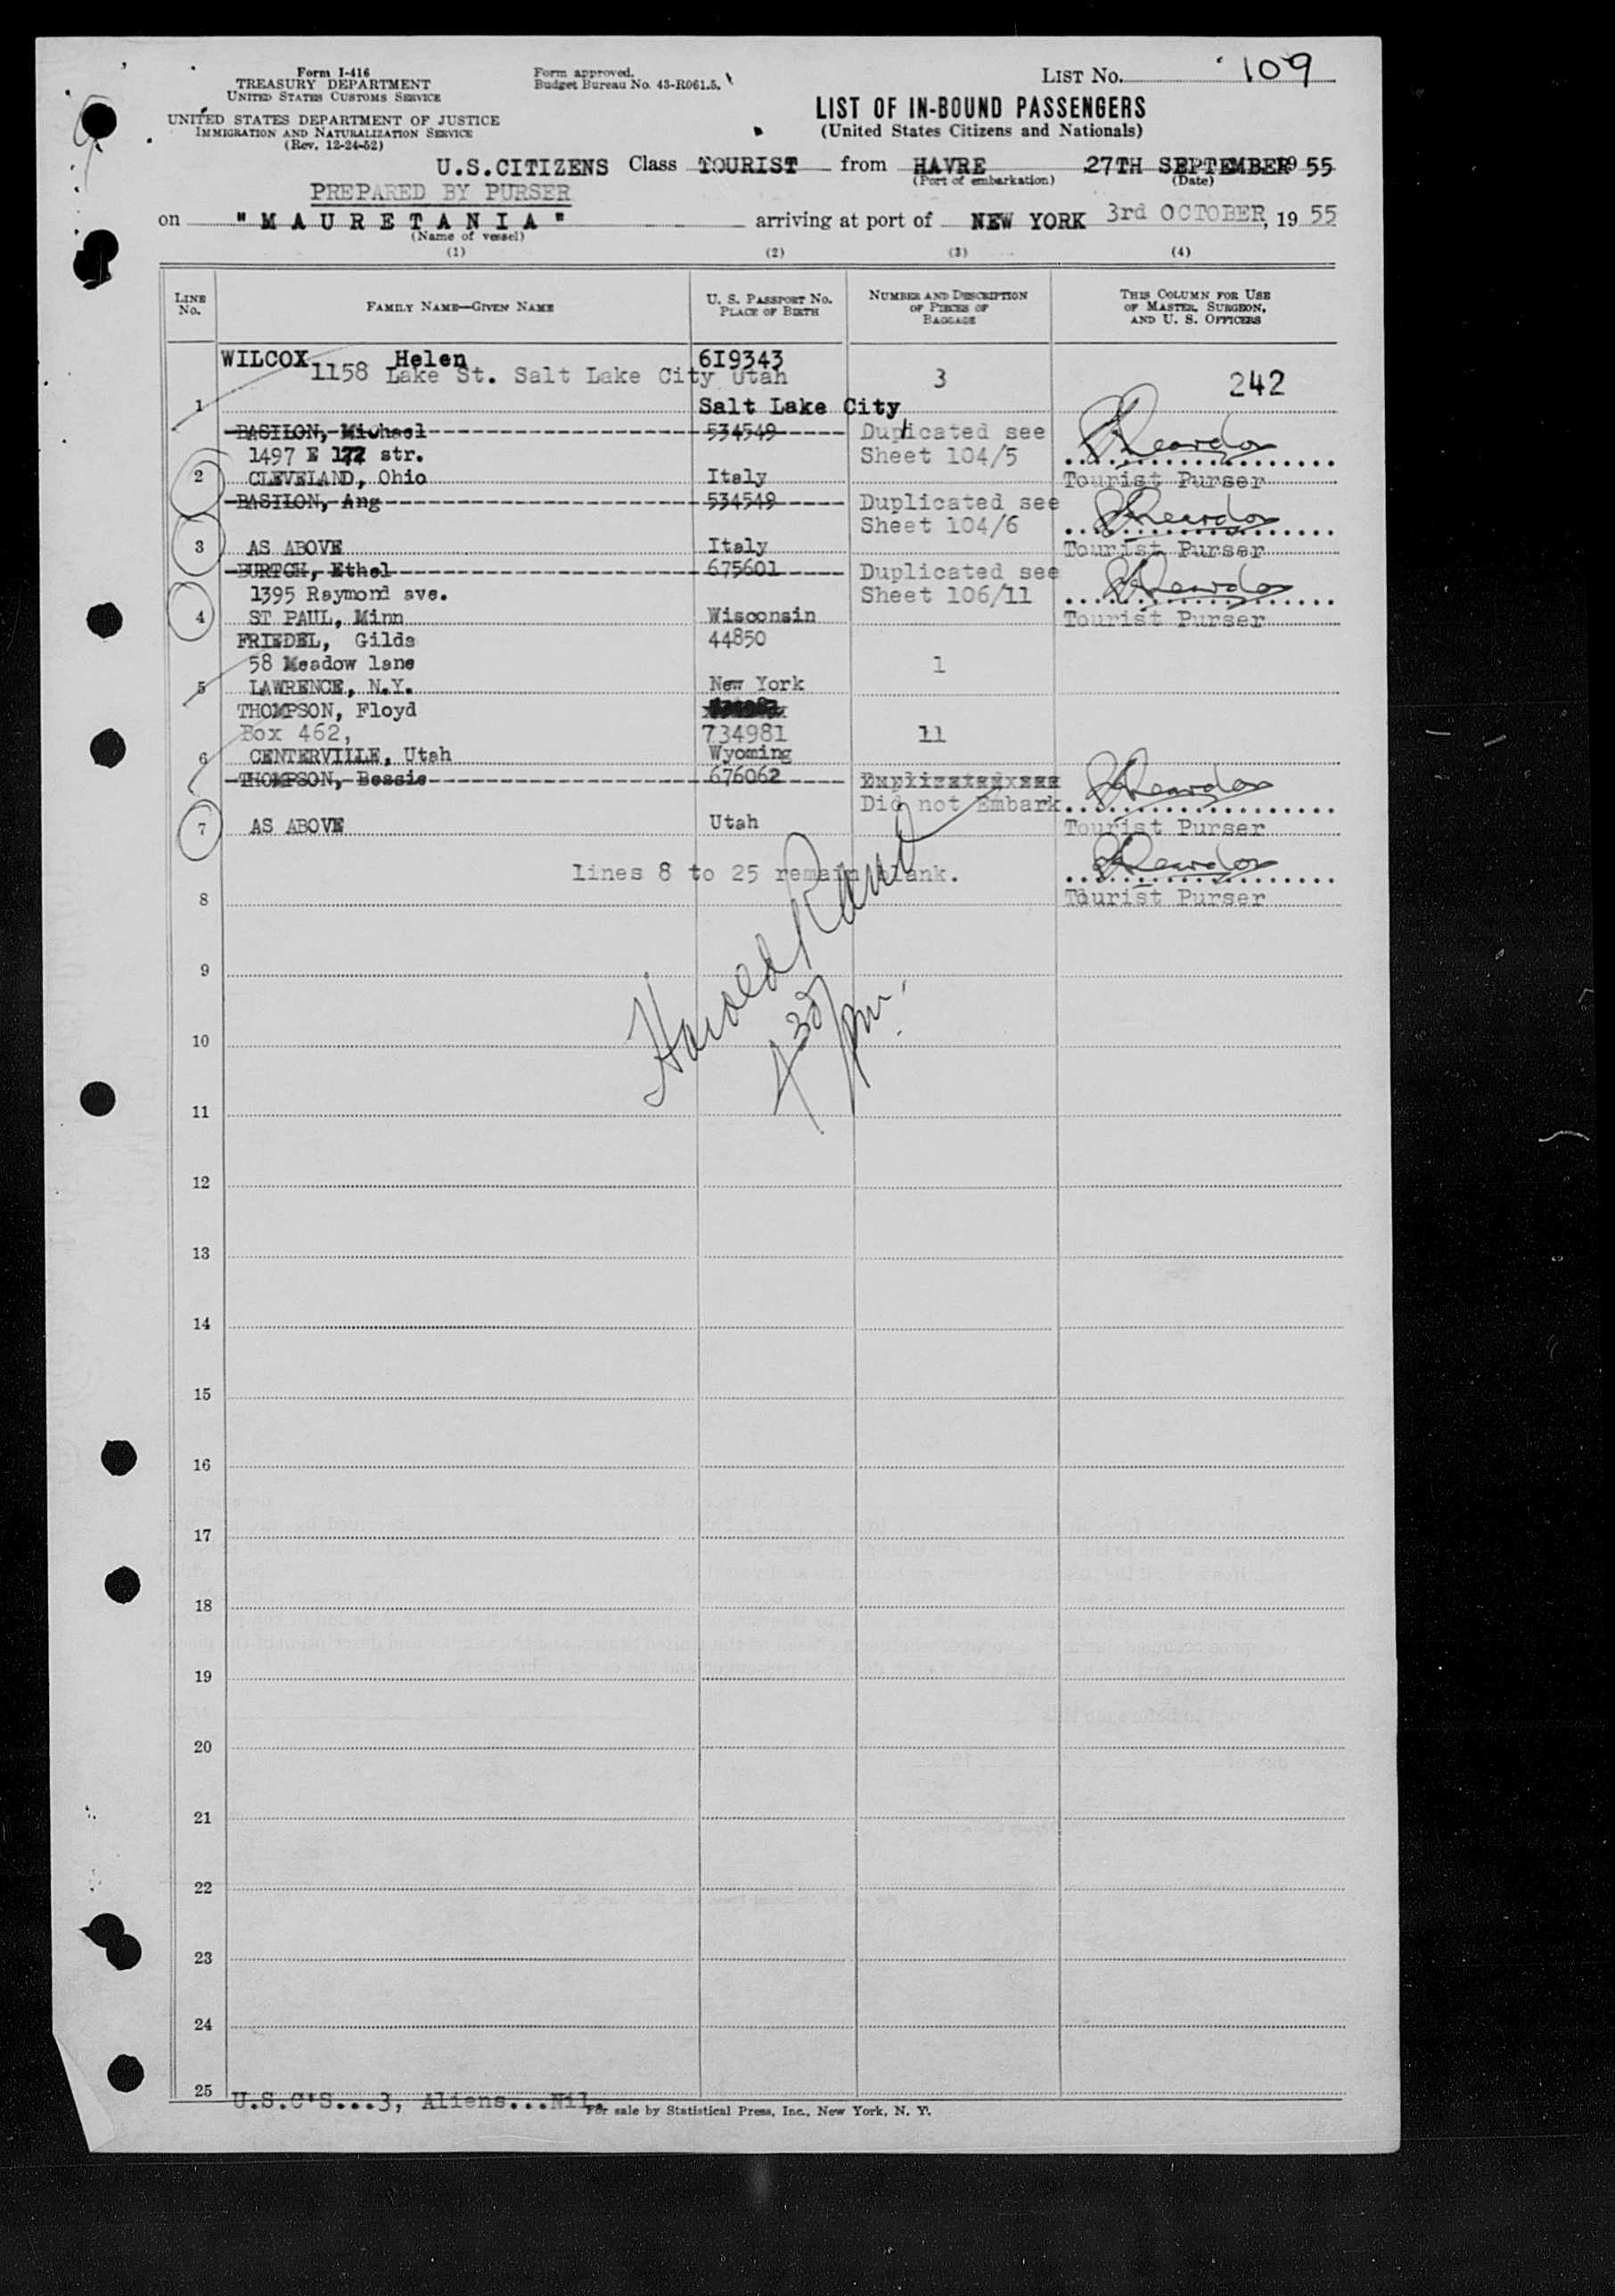 Form I-416
TREASURY DEPARTMENT
UNITED STATES CUSTOMS SERVICE
UNITED STATES DEPARTMENT OF JUSTICE
IMMIGRATION AND NATURALIZATION SERVICE
(Rev. 12-24-52)
Form approved.
Budget Bureau No. 43-R061.5.
LIST NO. 109
LIST OF IN-BOUND PASSENGERS
(United States Citizens and Nationals)
U.S.CITIZENS Class TOURIST from HAVRE 27TH SEPTEMBER 1955
(Port of embarkation) (Date)
PREPARED BY PURSER
on "MAURETANIA" arriving at port of NEW YORK 3rd OCTOBER, 1955
(Name of vessel)
(1) (2) (3) (4)
LINE No. FAMILY NAME—GIVEN NAME U. S. PASSPORT NO. PLACE OF BIRTH NUMBER AND DESCRIPTION OF PIECES OF BAGGAGE THIS COLUMN FOR USE OF MASTER, SURGEON, AND U. S. OFFICERS
WILCOX Helen 6I9343
1158 Lake St. Salt Lake City Utah 3 242
1 Salt Lake City
BASILON, Michael 534549 Duplicated see
1497 E 172 str. Sheet 104/5
2 CLEVELAND, Ohio Italy Tourist Purser
BASILON, Ang 534549 Duplicated see
Sheet 104/6
3 AS ABOVE Italy Tourist Purser
BURTCH, Ethel 675601 Duplicated see
1395 Raymond ave. Sheet 106/11
4 ST PAUL, Minn Wisconsin Tourist Purser
FRIEDEL, Gilda 44850
58 Meadow lane 1
5 LAWRENCE, N.Y. New York
THOMPSON, Floyd
Box 462, 734981 11
6 CENTERVILLE, Utah Wyoming
THOMPSON, Bessie 676062 Duplicated see
Did not Embark
7 AS ABOVE Utah Tourist Purser
Lines 8 to 25 remain blank.
8 Tourist Purser
Harold Rand
4 30 pm.
9
10
11
12
13
14
15
16
17
18
19
20
21
22
23
24
25 U.S.C'S...3, Aliens...Nil.
For sale by Statistical Press, Inc., New York, N. Y.